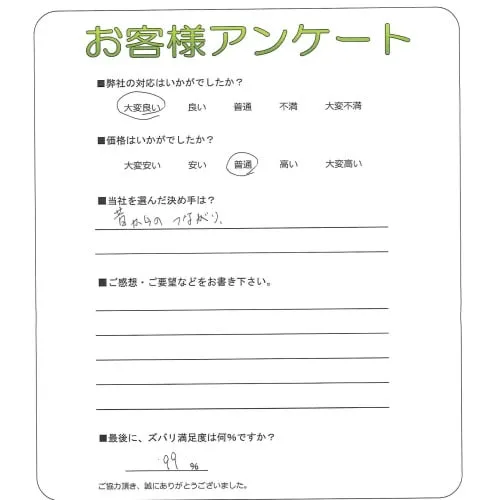 お客様アンケート
■弊社の対応はいかがでしたか？
大変良い 良い 普通 不満 大変不満
■価格はいかがでしたか？
大変安い 安い 普通 高い 大変高い
■当社を選んだ決め手は？
昔からの つながり、
■ご感想・ご要望などをお書き下さい。
■最後に、ズバリ満足度は何%ですか？
99 %
ご協力頂き、誠にありがとうございました。